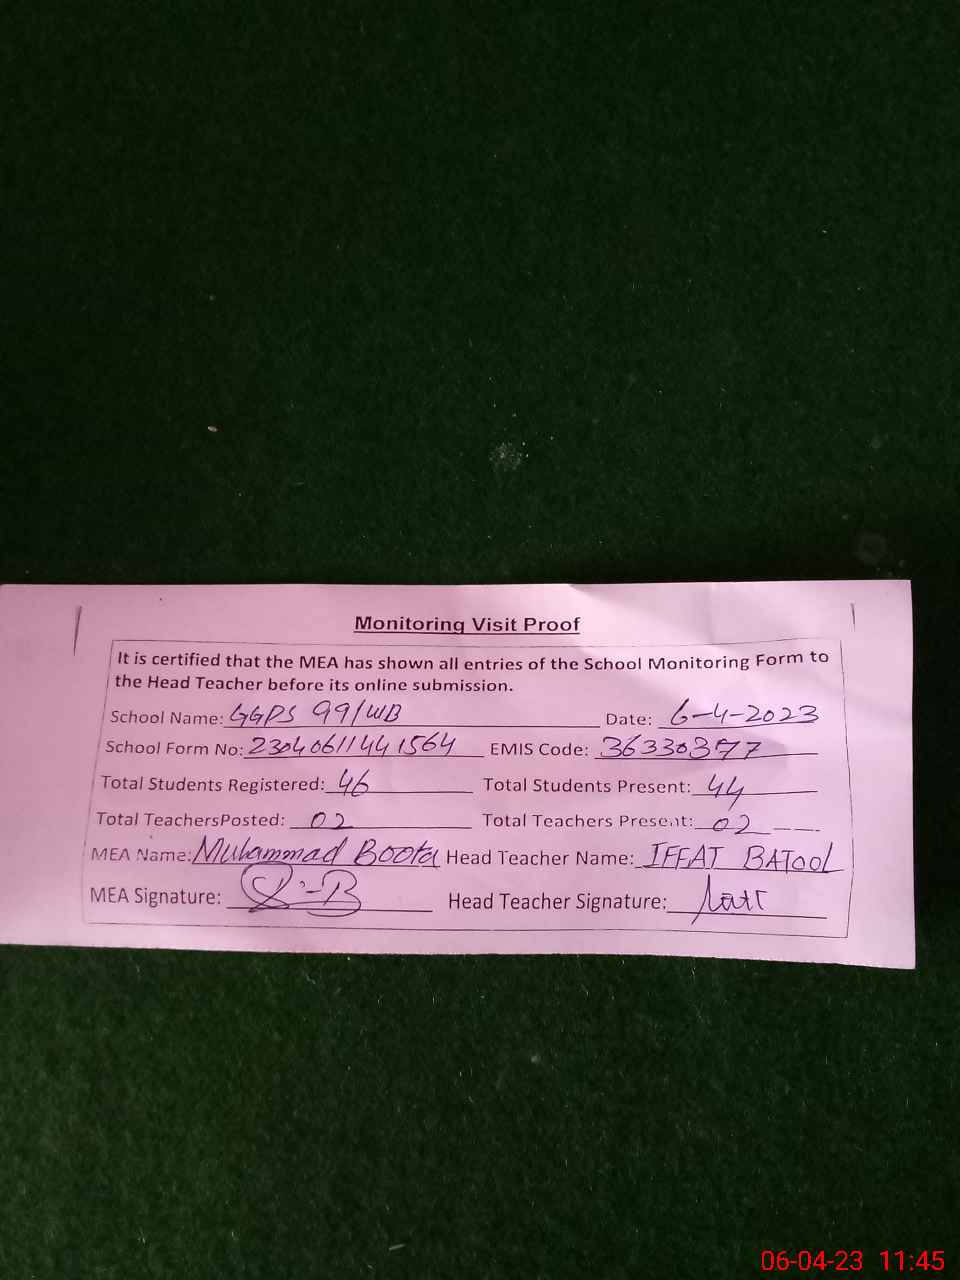 Monitoring Visit Proof
It is certified that the MEA has shown all entries of the School Monitoring Form to
the Head Teacher before its online submission.
School Name: GGPS 99/WB Date: 6-4-2023
School Form No: 23040611441564 EMIS Code: 36330377
Total Students Registered: 46 Total Students Present: 44
Total TeachersPosted: 02 Total Teachers Present: 02
MEA Name: Muhammad Boota Head Teacher Name: IFFAT BATOOL
MEA Signature: Head Teacher Signature:
06-04-23 11:45